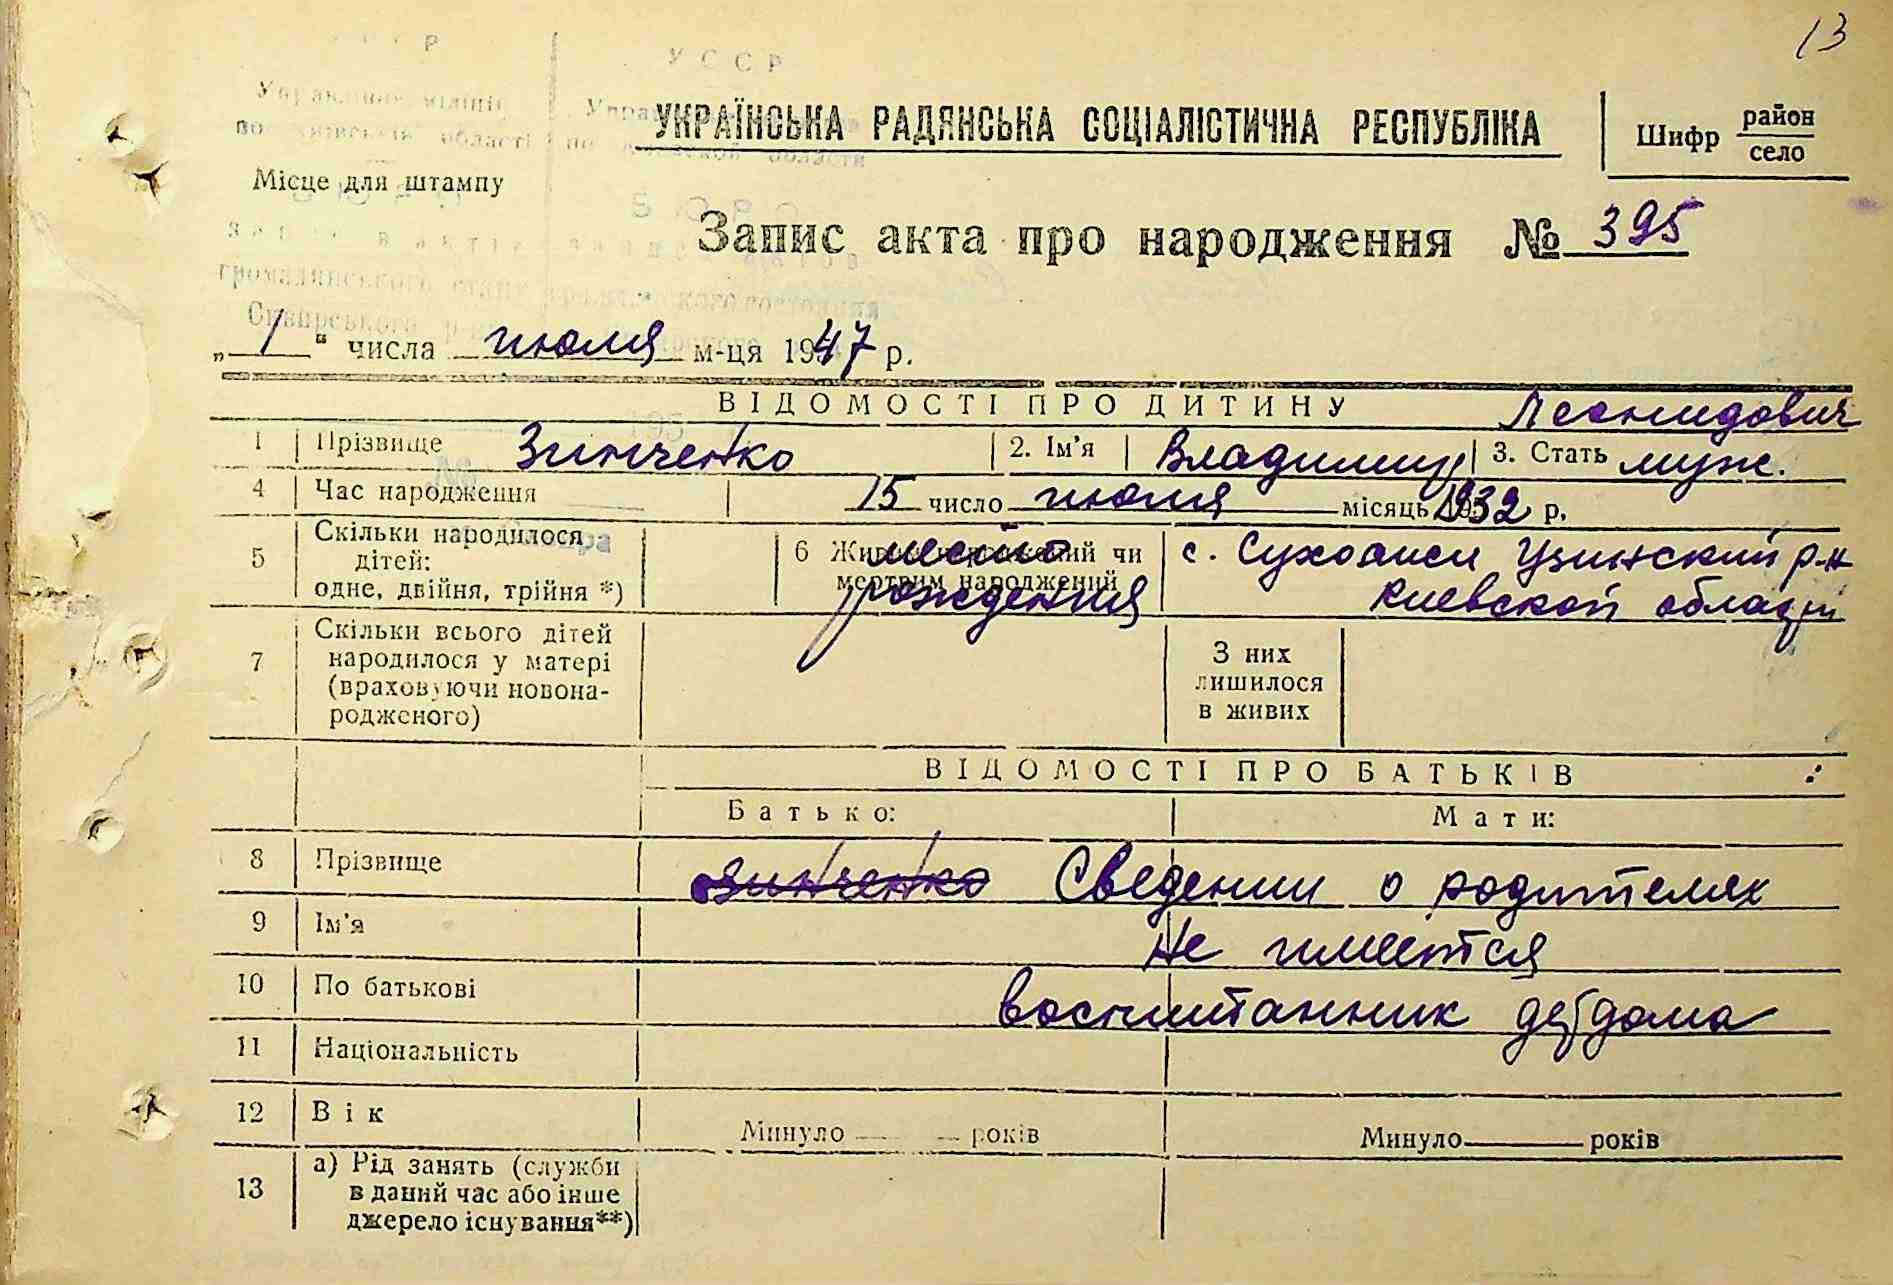 13
УКРАЇНСЬКА РАДЯНСЬКА СОЦІАЛІСТИЧНА РЕСПУБЛІКА
Шифр район
село
Місце для штампу
Запис акта про народження № 395
„1“ числа июля м-ця 1947 р.
ВІДОМОСТІ ПРО ДИТИНУ
Леонидович
1 Прізвище Зинченко 2. Ім'я Владимир 3. Стать муж.
4 Час народження 15 число июля місяць 1932 р.
5 Скільки народилося
дітей:
одне, двійня, трійня *)
6 Живим народжений чи
мертвим народжений
место
рождения
с. Сухолиси Узинский р-н
Киевской області
7 Скільки всього дітей
народилося у матері
(враховуючи новона-
родженого)
З них
лишилося
в живих
ВІДОМОСТІ ПРО БАТЬКІВ
Батько: Мати:
8 Прізвище Зинченко Сведении о родителях
9 Ім'я Не имеется
10 По батькові воспитанник детдома
11 Національність
12 Вік Минуло років Минуло років
13 а) Рід занять (служби
в даний час або інше
джерело існування**)